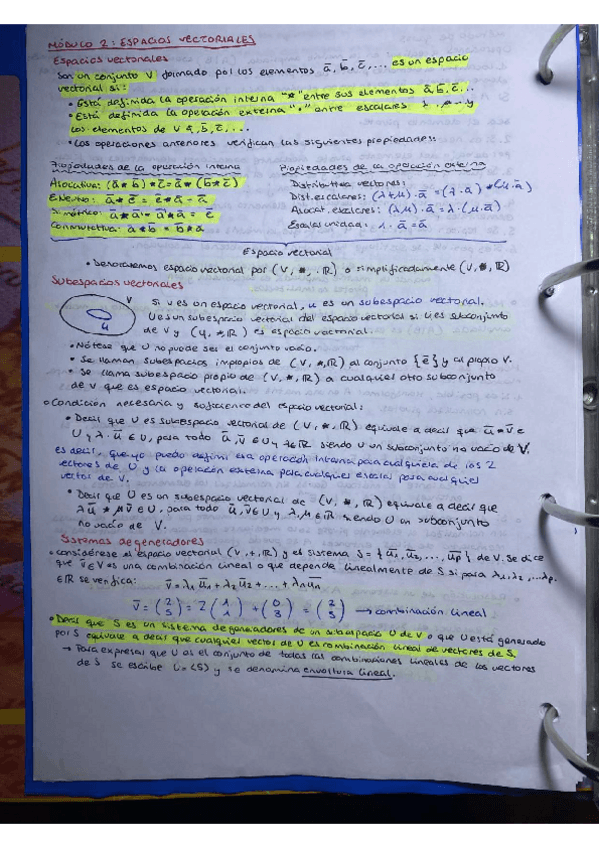 MÓDULO 2: ESPACIOS VECTORIALES
Espacios vectoriales
Son un conjunto V formado por los elementos a̅, b̅, c̅, ... es un espacio
vectorial si:
• Está definida la operación interna "*" entre sus elementos a̅, b̅, c̅...
• Está definida la operación externa "·" entre escalares λ ... y
los elementos de V a̅, b̅, c̅, ...
• Las operaciones anteriores verifican las siguientes propiedades:
Propiedades de la operación interna
Asociativa: (a̅ * b̅) * c̅ = a̅ * (b̅ * c̅)
E. Neutro: a̅ * e̅ = e̅ * a̅ = a̅
Simétrico:
Conmutativa: a̅ * b̅ = b̅ * a̅
Propiedades de la operación externa
Distributiva vectores:
Dist. escalares: (λ+μ) · a̅ = (λ · a̅) * (μ · a̅)
Asociat. escalares: (λμ) · a̅ = λ · (μ · a̅)
Escalar unidad: 1 · a̅ = a̅
Espacio vectorial
• Denotaremos espacio vectorial por (V, *, · ℝ) o simplificadamente (V, *, ℝ)
Subespacios vectoriales
V
U
Si V es un espacio vectorial, U es un subespacio vectorial.
U es un subespacio vectorial del espacio vectorial si U es subconjunto
de V y (U, *, ℝ) es espacio vectorial.
• Nótese que U no puede ser el conjunto vacío.
• Se llaman subespacios impropios de (V, *, ℝ) al conjunto {e̅} y al propio V.
• Se llama subespacio propio de (V, *, ℝ) a cualquier otro subconjunto
de V que es espacio vectorial.
○ Condición necesaria y suficiente del espacio vectorial:
• Decir que U es subespacio vectorial de (V, *, ℝ) equivale a decir que u̅ * v̅ ∈
U y λ · u̅ ∈ U, para todo u̅, v̅ ∈ U y λ ∈ ℝ siendo U un subconjunto no vacío de V.
es decir, que yo puedo definir esa operación interna para cualquiera de los 2
vectores de U y la operación externa para cualquier escalar para cualquier
vector de V.
• Decir que U es un subespacio vectorial de (V, *, ℝ) equivale a decir que
λu̅ * μv̅ ∈ U, para todo u̅, v̅ ∈ U y λ, μ ∈ ℝ siendo U un subconjunto
no vacío de V.
Sistemas de generadores
• considérese el espacio vectorial (V, +, ℝ) y el sistema S = {u̅₁, u̅₂, ..., u̅p} de V. Se dice
que v̅ ∈ V es una combinación lineal o que depende linealmente de S si para λ₁, λ₂, ... λp
∈ ℝ se verifica: v̅ = λ₁ u̅₁ + λ₂ u̅₂ + ... + λn u̅n
v̅ = (2 5) = 2 (1 1) + (0 3) = (2 5) → combinación lineal
• Decir que S es un sistema de generadores de un subespacio U de V o que U está generado
por S equivale a decir que cualquier vector de U es combinación lineal de vectores de S.
→ Para expresar que U es el conjunto de todas las combinaciones lineales de los vectores
de S se escribe U = ⟨S⟩ y se denomina envoltura lineal.